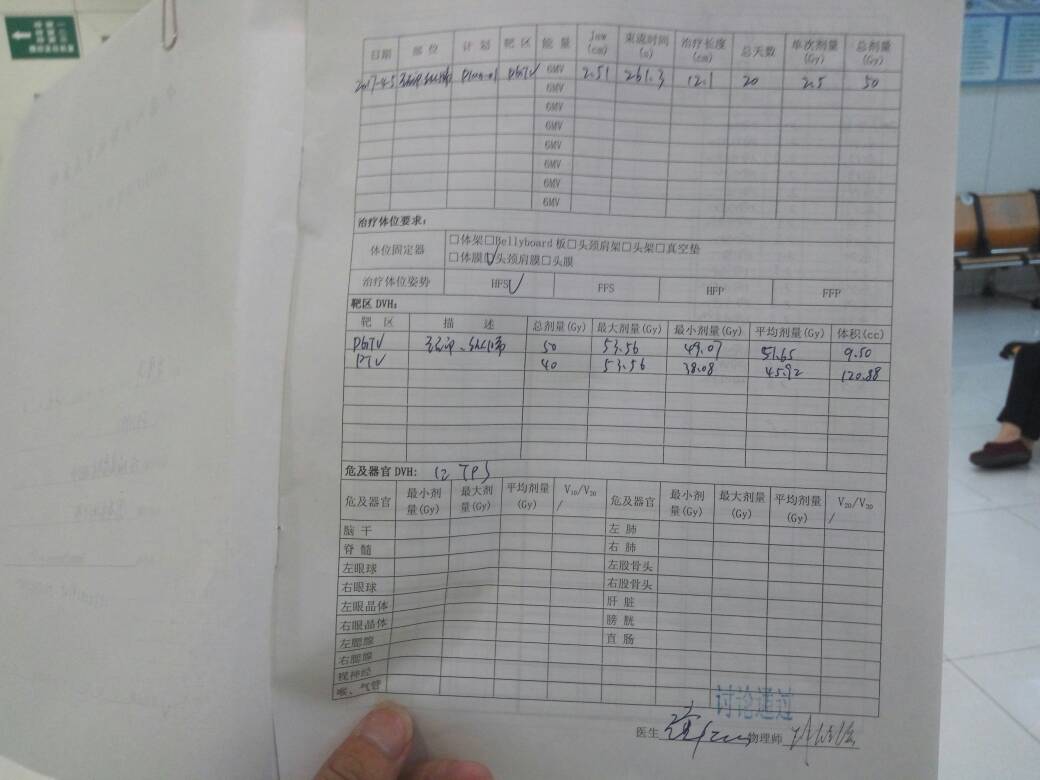 日期 部位 计划 靶区 能量 Jaw(cm) 束流时间(s) 治疗长度(cm) 总天数 单次剂量(Gy) 总剂量(Gy)
2017-4-5 plan-01 PGTV √ 6MV 2.51 261.3 12.1 20 2.5 50
6MV
6MV
6MV
6MV
6MV
6MV
6MV
治疗体位要求:
体位固定器 □体架□Bellyboard 板□头颈肩架□头架□真空垫
□体膜□√头颈肩膜□头膜
治疗体位姿势 HFS√ FFS HFP FFP
靶区 DVH:
靶 区 描 述 总剂量(Gy) 最大剂量(Gy) 最小剂量(Gy) 平均剂量(Gy) 体积(cc)
PGTV 50 53.56 49.07 51.65 9.50
PTV 40 53.56 38.08 45.92 120.88
危及器官DVH: 12 TPS
危及器官 最小剂量(Gy) 最大剂量(Gy) 平均剂量(Gy) V₁₀/V₂₀/ 危及器官 最小剂量(Gy) 最大剂量(Gy) 平均剂量(Gy) V₂₀/V₃₀/
脑 干 左 肺
脊 髓 右 肺
左眼球 左股骨头
右眼球 右股骨头
左眼晶体 肝 脏
右眼晶体 膀 胱
左腮腺 直 肠
右腮腺
视神经
喉、气管
讨论通过
医生 物理师